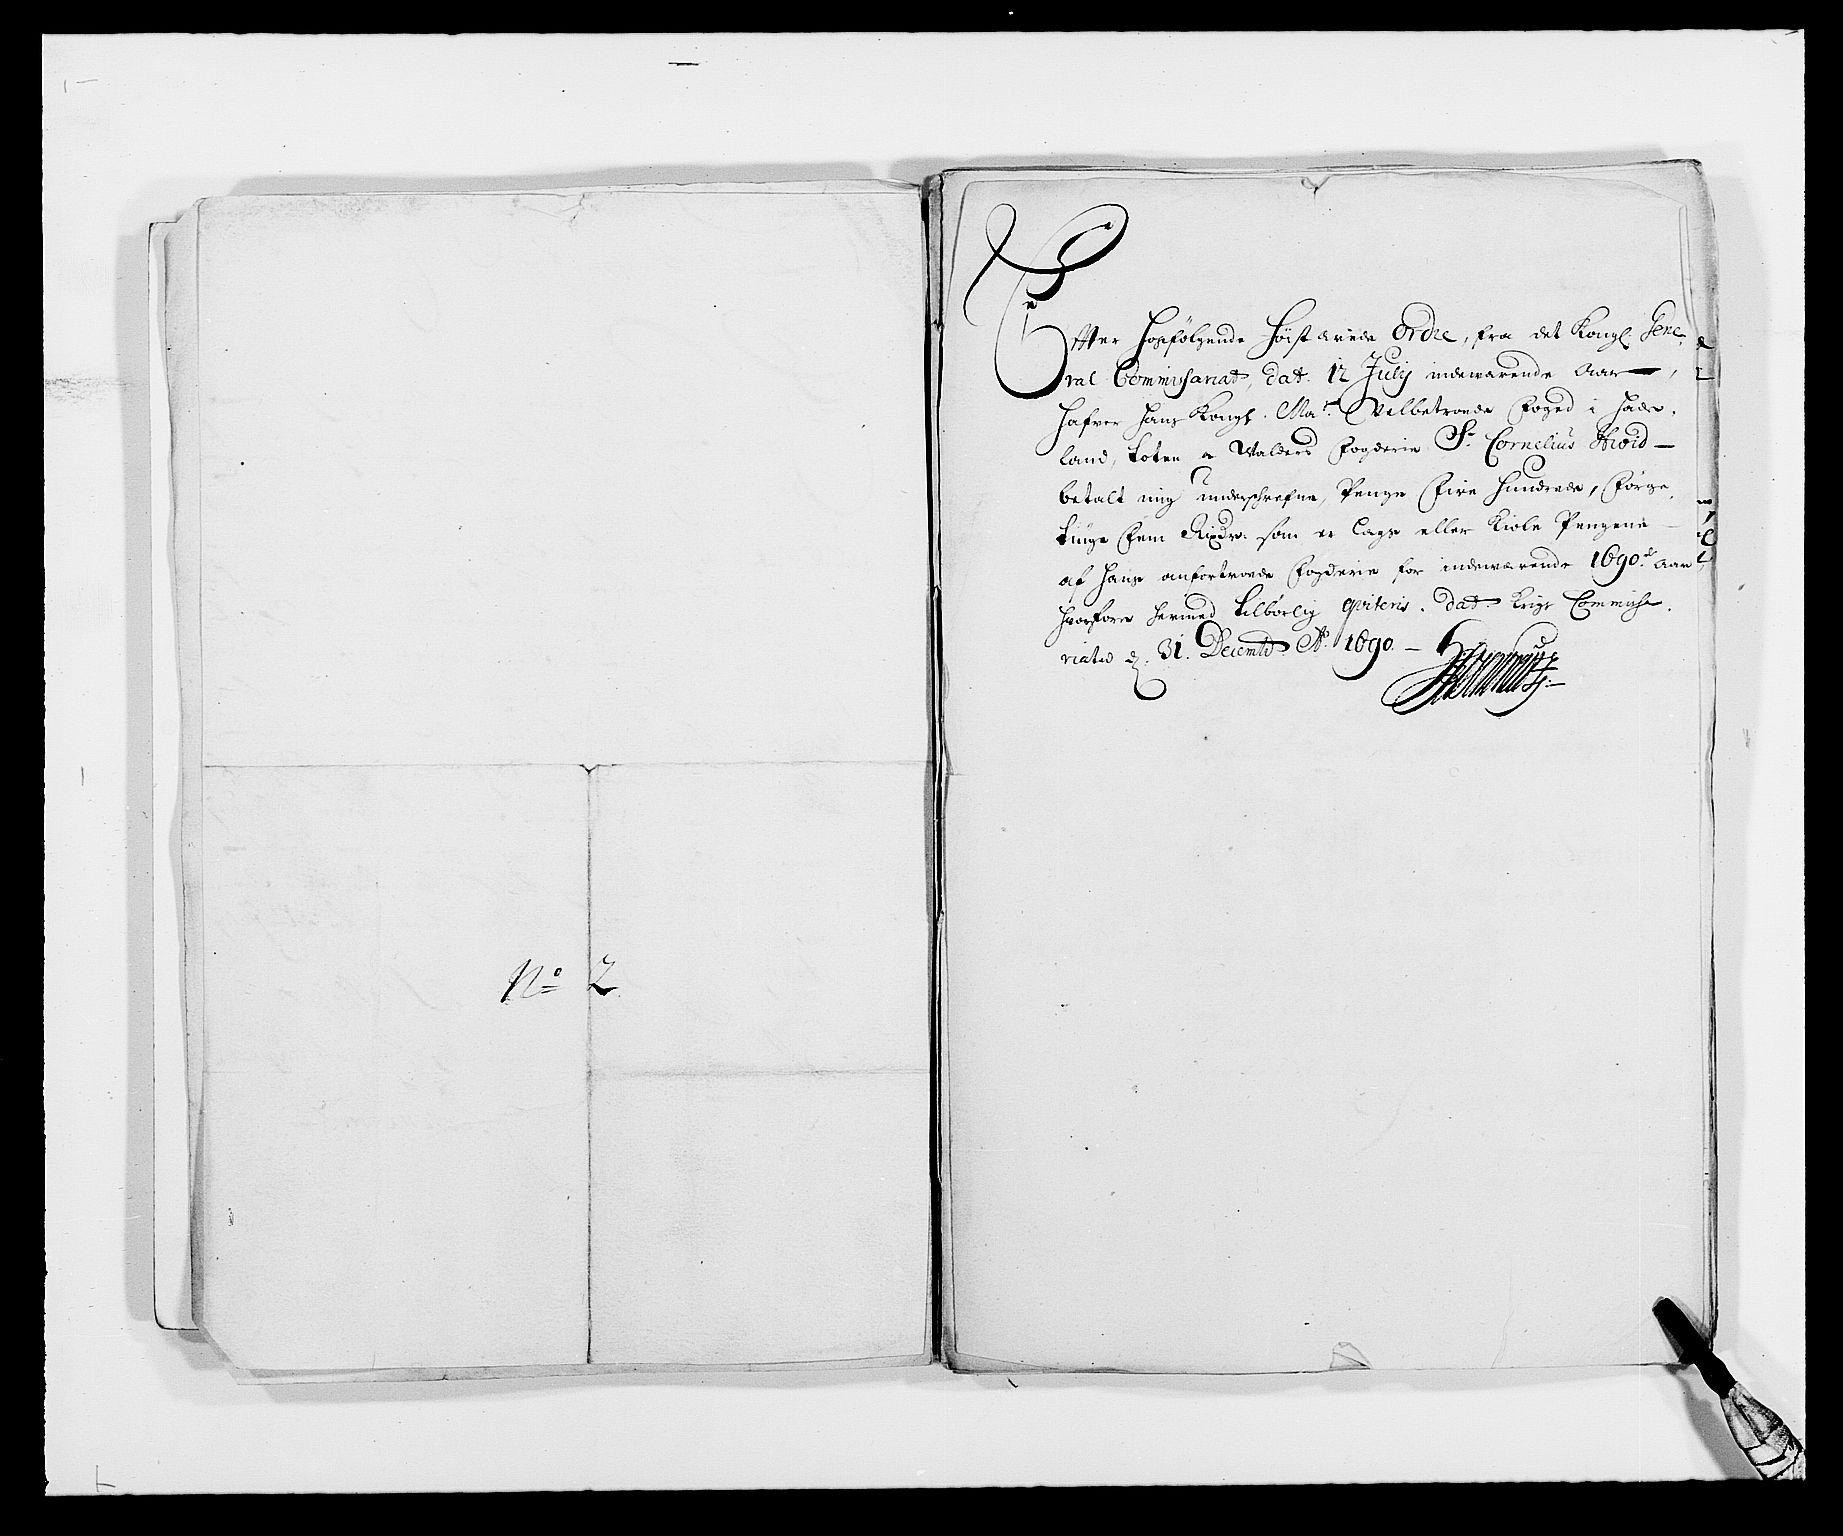 No 2
Effter hosfølgende höist ærede Ordre, fra det Kongl. Gene-
ral Commissariat, dat. 12 July indeværende Aar,
hafver Hans Kongl. Mats Velbetroede Foged i Hade-
land, Toten a Walders Fogderie Sr. Cornelius Hvid
betalt mig underschrefne, Penge Fire Hundrede, Førge
tiuge Fem Rixdr. som er Lags eller Kiole Pengene
af Hans anfortroede Fogderie for indeværende 1690de Aar
hvorfore hermed tilbørlig qviteris. Dat. Krigs Commissa-
riated d. 31. Decembr Ao 1690